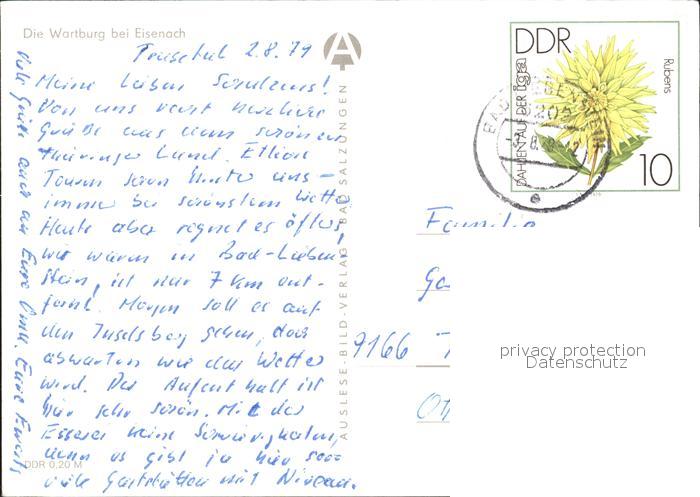 Die Wartburg bei Eisenach
Trusetal 2.8.79
Meine Lieben Schulzens!
Von uns recht herzliche
Grüße aus dem schönen
Thüringer Land. Etliche
Touren schon hinter uns –
immer bei schönstem Wetter
Heute aber regnet es öfters,
wir waren in Bad-Lieben-
stein, ist nur 7 km ent-
fernt. Morgen soll es auf
den Inselsberg gehen, doch
abwarten wie das Wetter
wird. Der Aufenthalt ist
hier sehr schön. Mit der
Esserei keine Schwierigkeiten,
denn es gibt ja hier sooo
viele Gaststätten mit Niveau.
Viele Grüße auch an Eure Eure
DDR 0,20 M
AUSLESE-BILD-VERLAG BAD SALZUNGEN
DDR
DAHLIEN AUF DER iga
Rubens
10
BAD
Familie
9166
privacy protection
Datenschutz